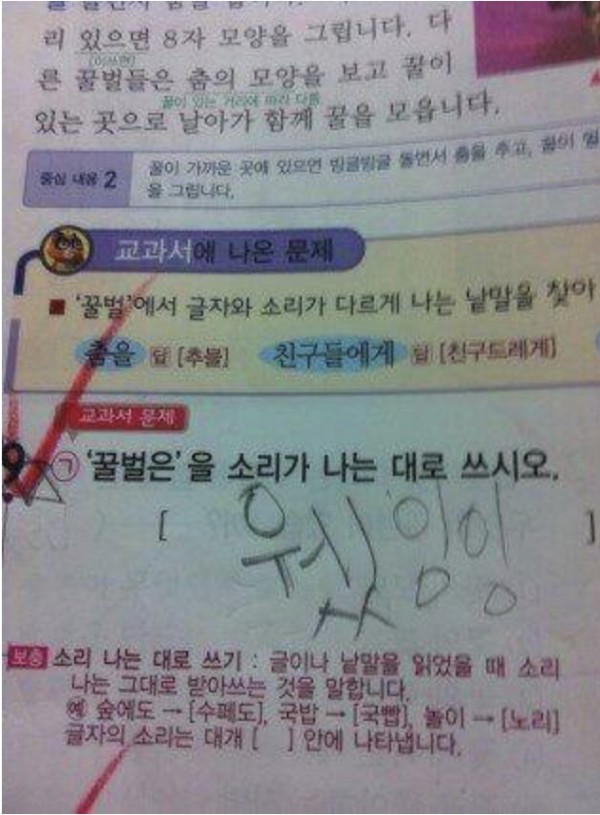 리 있으면 8자 모양을 그립니다. 다
른 꿀벌들은 춤의 모양을 보고 꿀이
꿀이 있는 거리에 따라 다름
있는 곳으로 날아가 함께 꿀을 모읍니다.
중심 내용 2
꿀이 가까운 곳에 있으면 빙글빙글 돌면서 춤을 추고, 꿀이 멀
을 그립니다.
교과서에 나온 문제
'꿀벌'에서 글자와 소리가 다르게 나는 낱말을 찾아
춤을 답 [추믈] 친구들에게 답 [친구드레게]
교과서 문제
9.
㉠ '꿀벌은'을 소리가 나는 대로 쓰시오.
[ 위잉잉 ]
보충 소리 나는 대로 쓰기 : 글이나 낱말을 읽었을 때 소리
나는 그대로 받아쓰는 것을 말합니다.
예 숲에도 → [수페도], 국밥 → [국빱], 놀이 → [노리]
글자의 소리는 대개 [ ] 안에 나타냅니다.